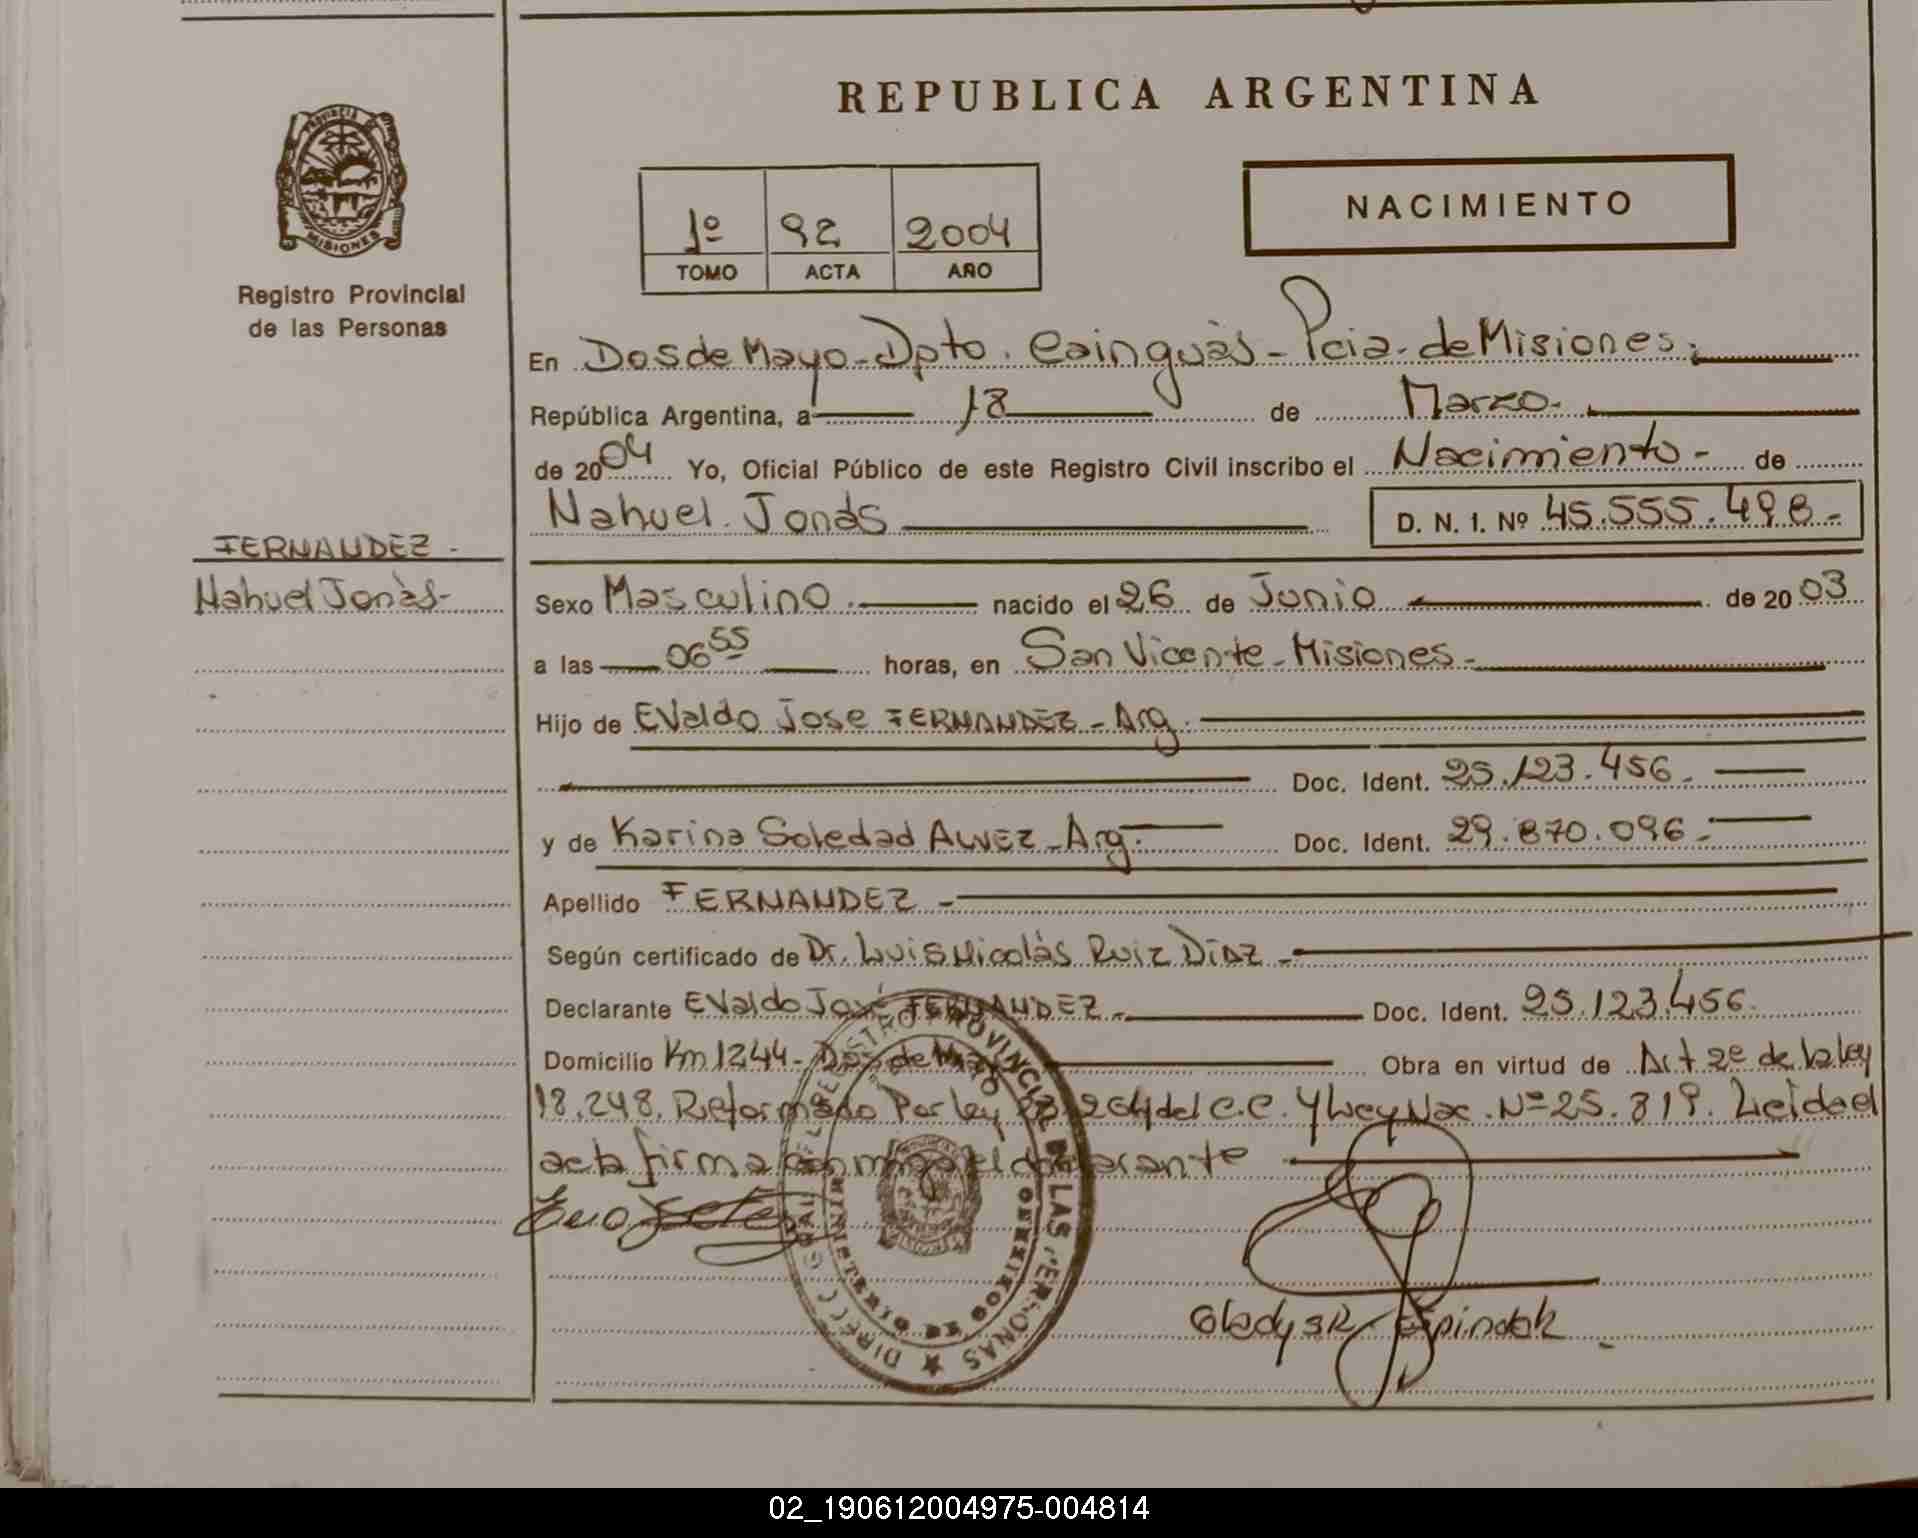 REPUBLICA ARGENTINA
PROVINCIA DE MISIONES
Registro Provincial
de las Personas
1º 92 2004
TOMO ACTA AÑO
NACIMIENTO
En Dos de Mayo - Dpto. Cainguàs - Pcia. de Misiones.
República Argentina, a 18 de Marzo.
de 2004 Yo, Oficial Público de este Registro Civil inscribo el Nacimiento - de
Nahuel Jonás D. N. I. Nº 45.555.498.-
FERNANDEZ -
Nahuel Jonàs-
Sexo Masculino. nacido el 26 de Junio de 2003
a las 06 55 horas, en San Vicente - Misiones -
Hijo de Evaldo Jose FERNANDEZ - Arg.
Doc. Ident. 25.123.456.-
y de Karina Soledad ALVEZ - Arg. Doc. Ident. 29.870.096.-
Apellido FERNANDEZ -
Según certificado de Dr. Luis Nicolàs Ruiz Diaz -
Declarante Evaldo José FERNANDEZ - Doc. Ident. 25.123.456.
Domicilio Km 1244 - Dos de Mayo Obra en virtud de Art 2º de la ley
18.248. Reformado Por ley 264 del C.C. y Ley Nac. Nº 25.819. Leida el
acta firma conmigo el declarante
DIRECC. GRAL. DEL REGISTRO PROVINCIAL DE LAS PERSONAS
MINISTERIO DE GOBIERNO
Gladys R. Espindola
02_190612004975-004814